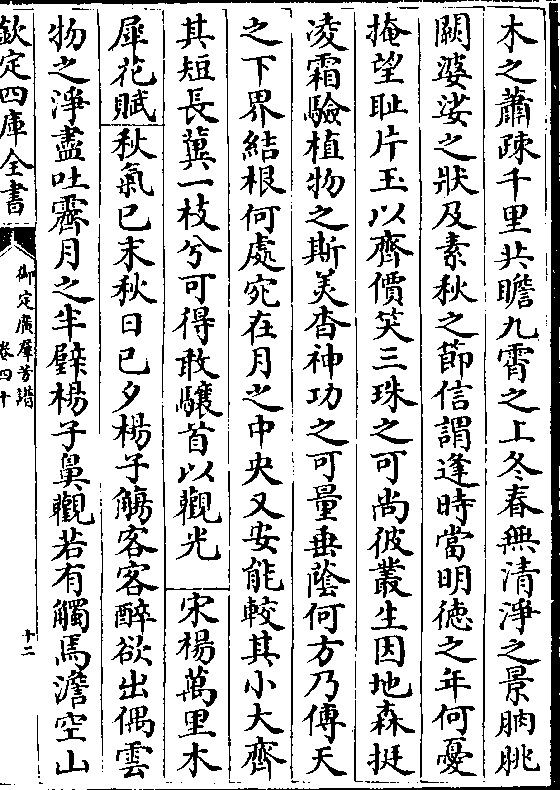 木之蕭疎千里共瞻九霄之上冬春無清淨之景朒朓
闕婆娑之狀及素秋之節信謂逢時當明徳之年何憂
掩望耻片玉以齊價笑三珠之可尚彼叢生因地森挺
凌霜驗植物之斯美杳神功之可量垂蔭何方乃傳天
之下界結根何處宛在月之中央又安能較其小大齊
其短長冀一枝兮可得敢驤首以觀光　宋楊萬里木
犀花賦秋氣已末秋日已夕楊子觴客客醉欲出偶雲
物之淨盡吐霽月之半璧楊子鼻觀若有觸焉澹空山
欽定四庫全書
御定廣羣芳譜
卷四十
十二